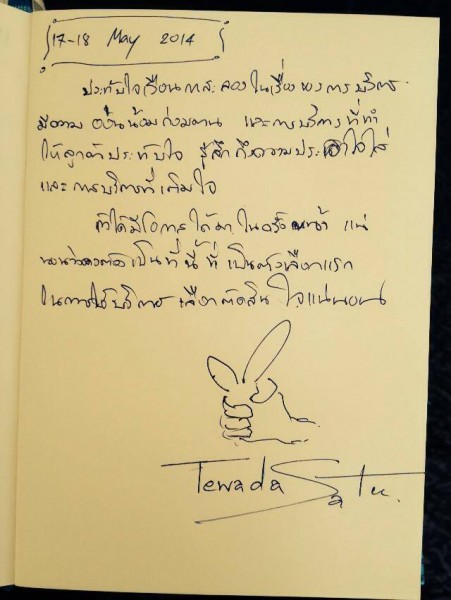 17-18 May 2014
ประทับใจเรือน การะ ลอง ในเรื่อง ของ การ บริการ
มีความ อ่อนน้อม ถ่อมตน และ การบริการ ที่ทำ
ให้ลูกค้าประทับใจ รู้สึกถึงความ เอาใจใส่
และ การบริการที่เต็มใจ
ถ้าได้มีโอกาส ได้มา ในครั้งหน้า แน่
นอน ต้องเป็นที่นี่ ที่ เป็นตัวเลือกแรก
ในการใช้บริการ ตัดสิน ใจแน่นอน
Tewada